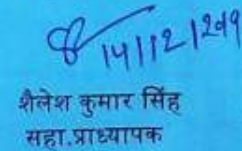 14/12/2019
शैलेश कुमार सिंह
सहा.प्राध्यापक